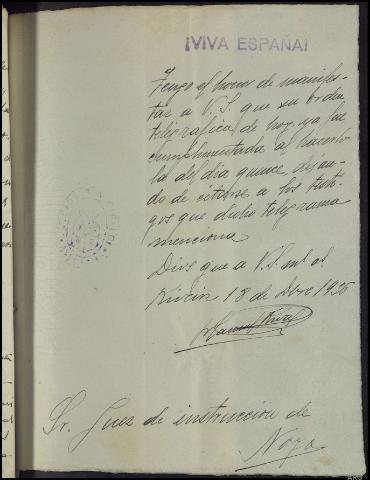 ¡VIVA ESPAÑA!
Tengo el honor de manifes-
tar a V.S. que su orden
telegrafica de hoy ya fue
cumplimentada al hacerlo
la del dia quince, dejan-
do de citarse a los testi-
gos que dicho telegrama
menciona
Dios que a V.S. ms as
18 de Dbre 193
Sr. Juez de instrucción de
Noya